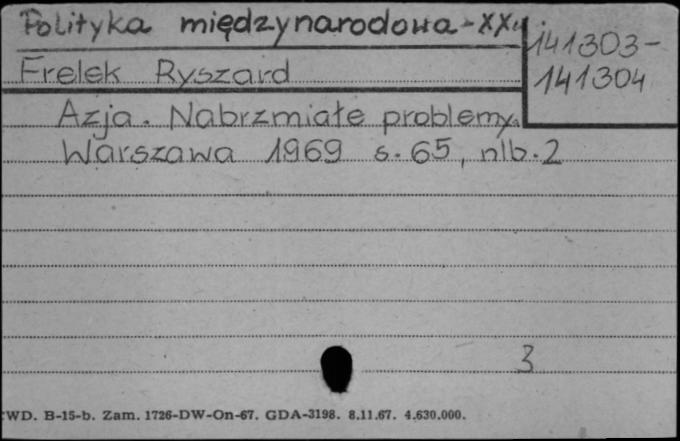 Polityka międzynarodowa - XX w.
141303-
141304
Frelek Ryszard
Azja. Nabrzmiałe problemy.
Warszawa 1969 s. 65, nlb. 2
3
CWD. B-15-b. Zam. 1726-DW-On-67. GDA-3198. 8.11.67. 4.630.000.